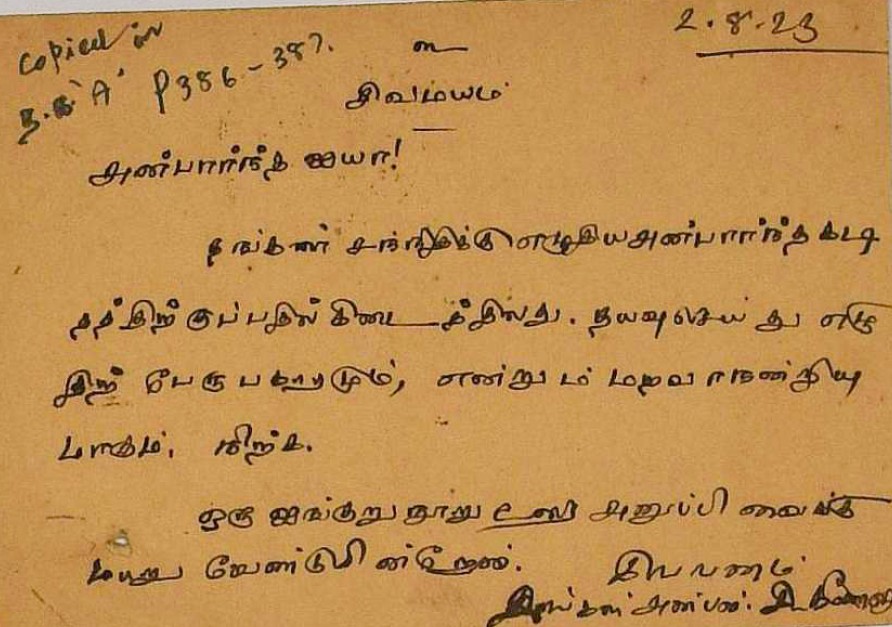 copied in
ந.க 'A' P 386-387.
2.8.23
உ
சிவமயம்
அன்பார்ந்த ஐயா!
தங்கள் சந்நிதிக்கு எழுதிய அன்பார்ந்த கடி
தத்திற்குப் பதில் கிடைத்திலது. தயவுசெய்து எழு
திற் பேருபகாரமும், என்றும் மறவாநன்றியு
மாகும். நிற்க.
ஒரு ஐங்குறுநூறு உரை அனுப்பி வைக்கு
மாறு வேண்டுகின்றேன்.
இப்படிக்கு
தங்கள் அன்பன்.